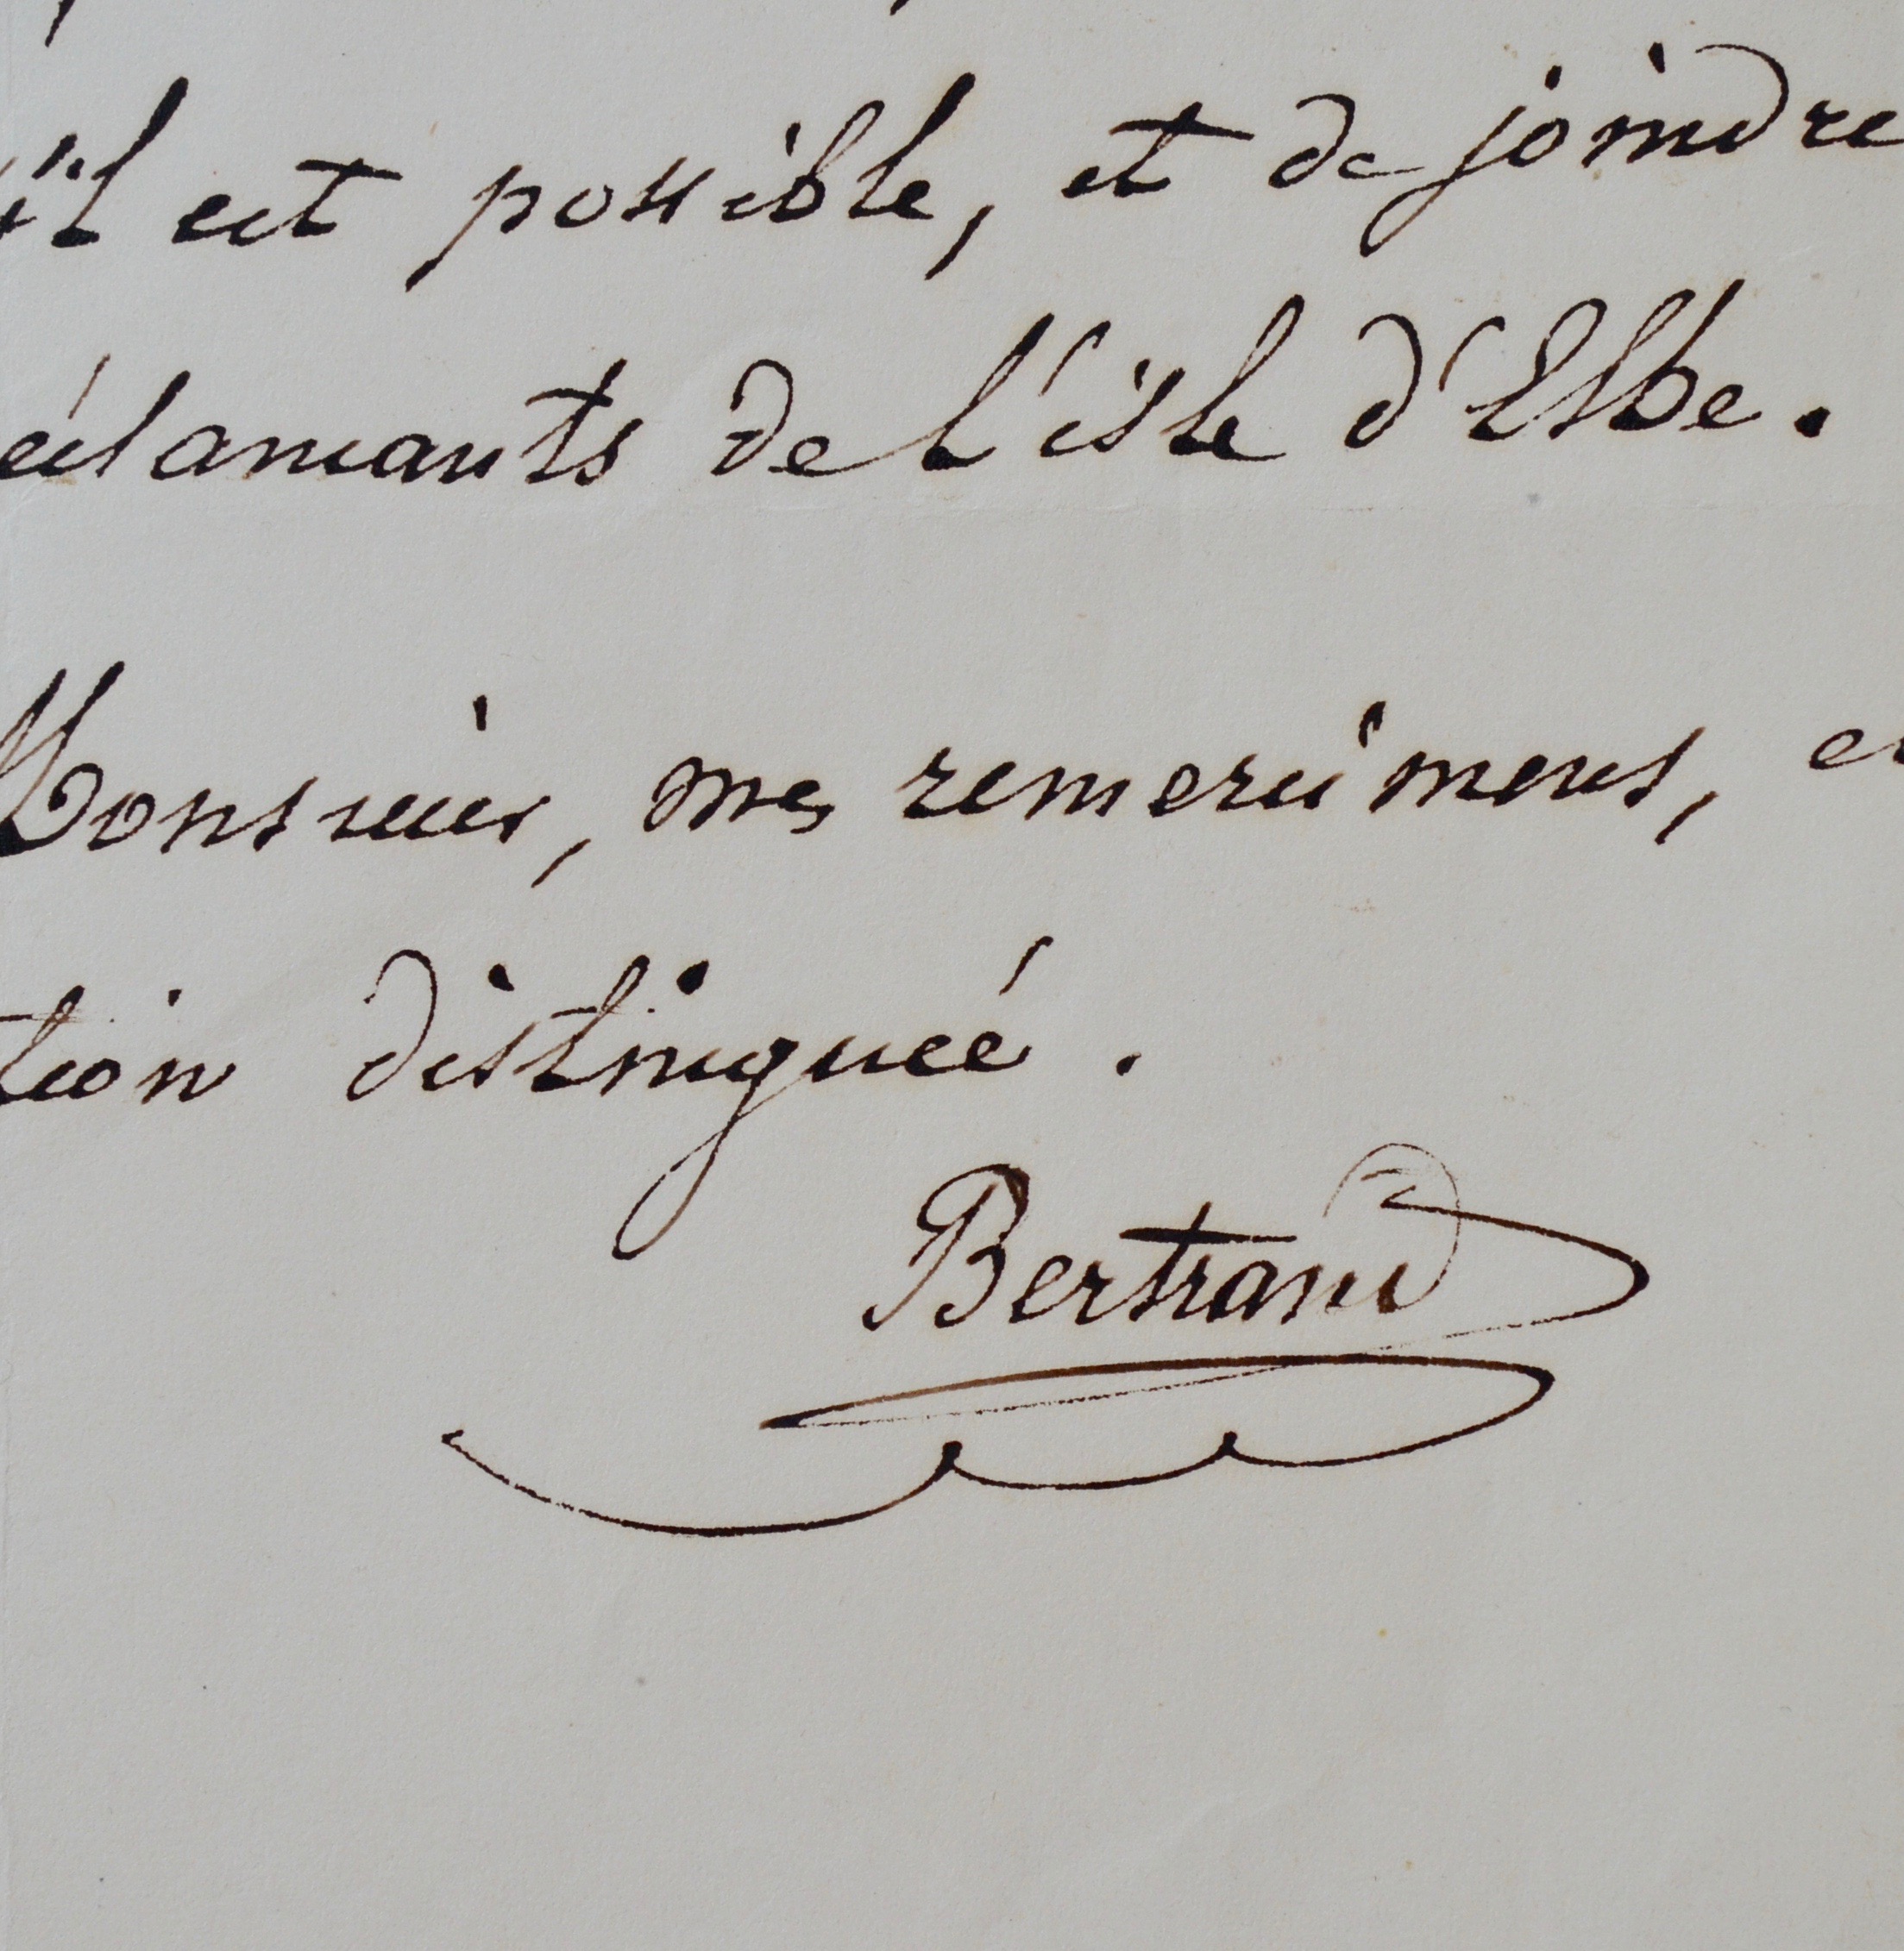 s'il est possible, et de joindre
éclamants de l'isle d'Elbe.
Monsieur, mes remercimens, e
tion distinguée.
Bertrand